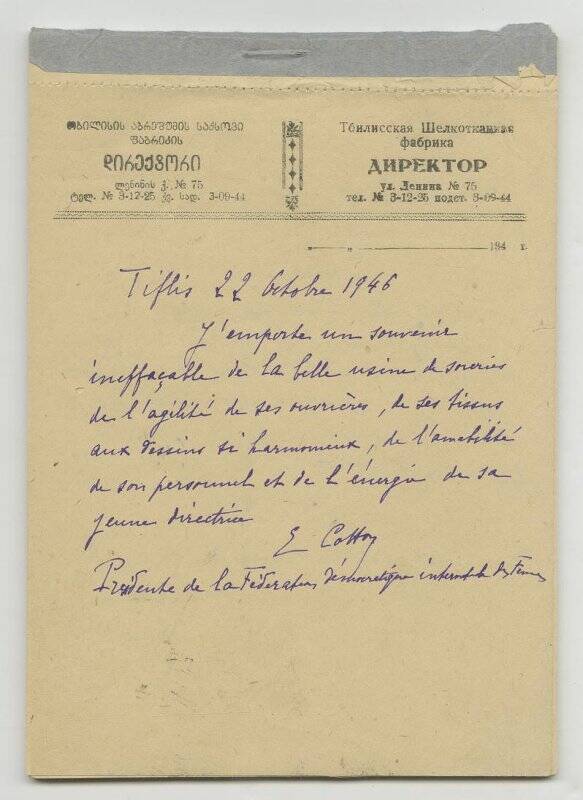 თბილისის აბრეშუმის საქსოვი
ფაბრიკის
დირექტორი
ლენინის ქ. № 75
ტელ. № 3-12-25 კვ. სად. 3-09-44
Тбилисская Шелкоткацкая
фабрика
ДИРЕКТОР
ул. Ленина № 75
тел. № 3-12-25 подст. 3-09-44
„ 194 г.
Tiflis 22 Octobre 1946
J'emporte un souvenir
ineffaçable de la belle usine de soieries
de l'agilité de ses ouvrières, de ses tissus
aux dessins si harmonieux, de l'amabilité
de son personnel et de l'énergie de sa
jeune directrice
E Cotton
Présidente de la Fédération démocratique internat le des Femmes